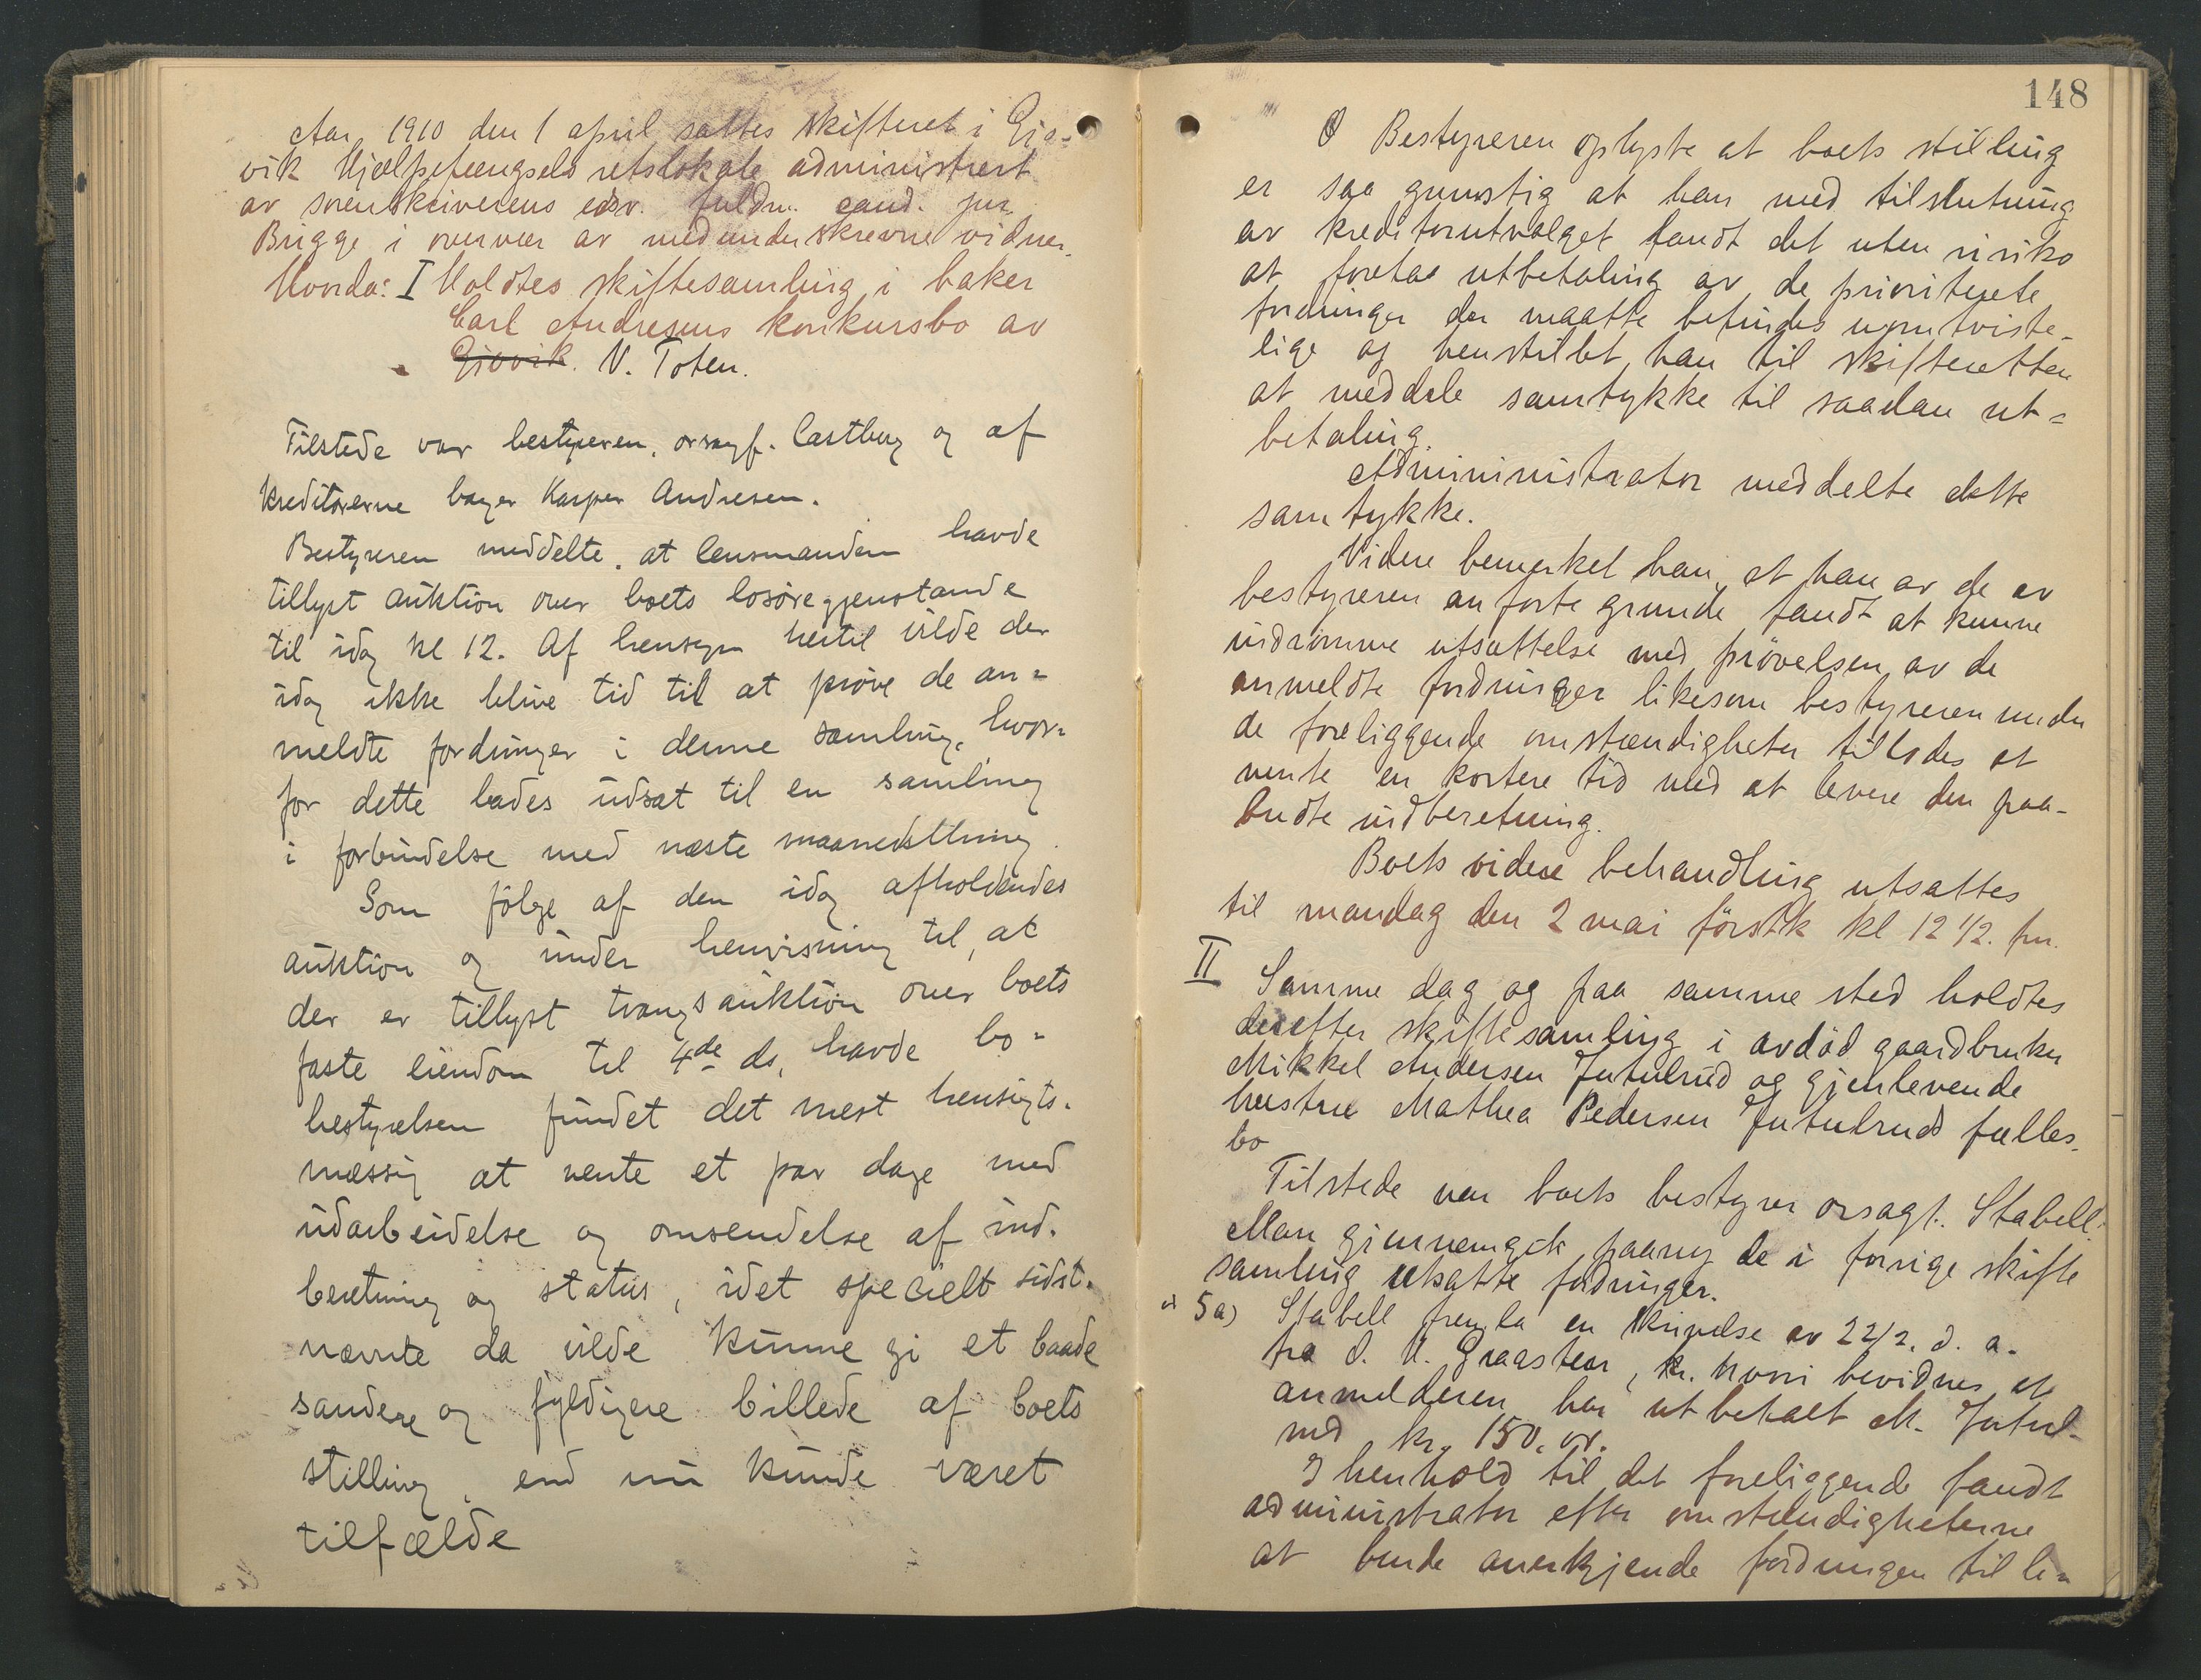 Aar 1910 den 1 april sattes skifteret i Gjø-
vik Hjælpefængsels retslokale administrert
av sorenskriverens edsv. fuldm. cand. jur.
Brigge i overvær av medunderskrevne vidner.
Hvorda: I Holdtes skiftesamling i baker
Carl Andresens konkursbo av
Gjøvik. V. Toten.
Tilstede var bestyreren, orsagf. Castberg og af
kreditorerne bager Kasper Andresen.
Bestyreren meddelte, at lensmanden havde
tillyst auktion over boets løsøregjenstande
til idag kl 12. Af hensyn hertil vilde der
idag ikke blive tid til at prøve de an-
meldte fordringer i denne samling, hvor-
for dette bades udsat til en samling
i forbindelse med næste maanedsthing.
Som følge af den idag afholdendes
auktion og under henvisning til, at
der er tillyst tvangsauktion over boets
faste eiendom til 4de ds, havde bo-
bestyrelsen fundet det mest hensigts-
mæssig at vente et par dage med
udarbeidelse og omsendelse af ind-
beretning og status, idet specielt sidst-
nævnte da vilde kunne gi et baade
sandere og fyldigere billede af boets
stilling, end nu kunde været
tilfælde
148
Bestyreren oplyste at boets stilling
er saa gunstig at han med tilslutning
av kreditorutvalget fandt det uten risiko
at foreta utbetaling av de prioriterte
fordringer der maatte befindes uomtviste-
lige og henstillet han til skifteretten
at meddele samtykke til saadan ut-
betaling.
Administrator meddelte dette
samtykke.
Videre bemerket han, at han av de av
bestyreren anførte grunde fandt at kunne
indrømme utsættelse med prøvelsen av de
anmeldte fordringer likesom bestyreren under
de foreliggende omstændigheter tillodes at
vente en kortere tid med at levere den paa-
budte indberetning.
Boets videre behandling utsattes
til mandag den 2 mai førstk kl 12 1/2. fm.
II Samme dag og paa samme sted holdtes
derefter skiftesamling i avdød gaardbruker
Mikkel Andersen Jutulrud og gjenlevende
hustru Mathea Pedersen Jutulruds fælles-
bo
Tilstede var boets bestyrer orsagf. Stabell.
Man gjennemgik paany de i forrige skifte
samling utsatte fordringer.
5a) Stabell fremla en skrivelse av 22/2. d. a.
fra O. H. Graasteen, hvori bevidnes at
anmelderen har utbetalt M. Jutul-
rud kr. 150,00.
I henhold til det foreliggende fandt
administrator efter omstændigheterne
at burde anerkjende fordringen til li-